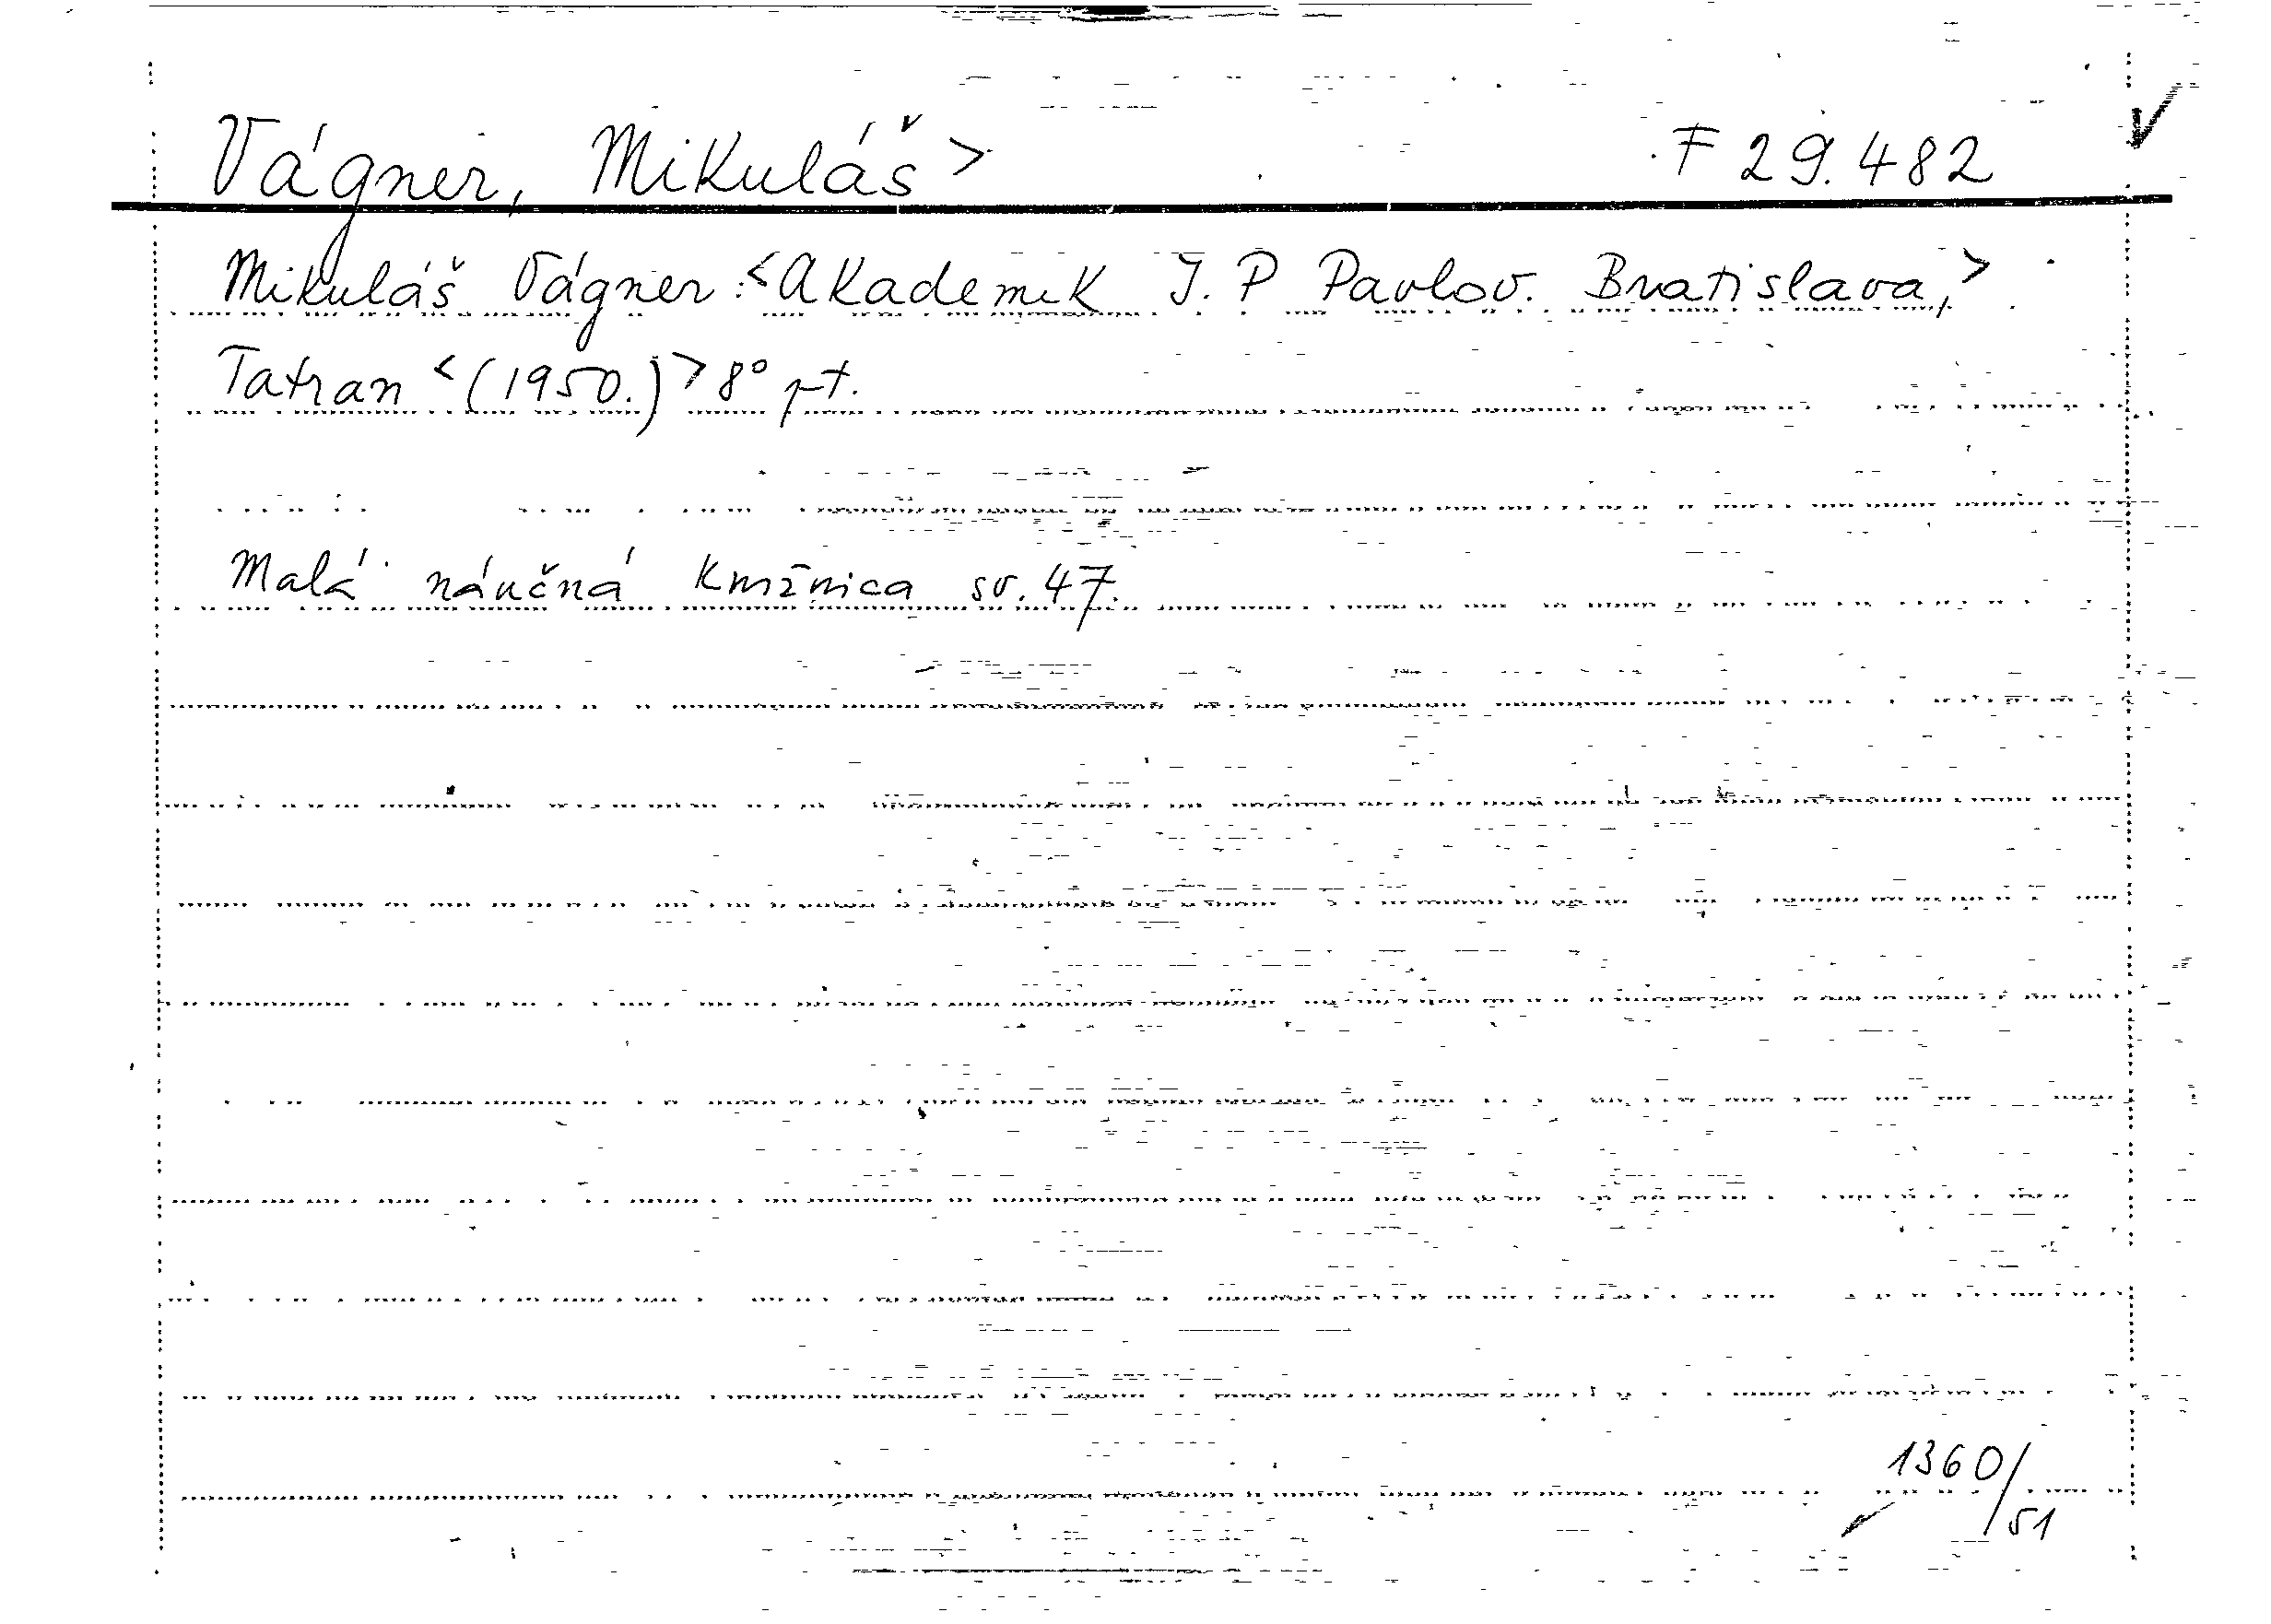 Vágner, Mikuláš> F 29.482
Mikuláš Vágner: <Akademik I. P Pavlov. Bratislava,>
Tatran <(1950.)> 8° pt.
Malá náučná knižnica sv. 47.
1360/51